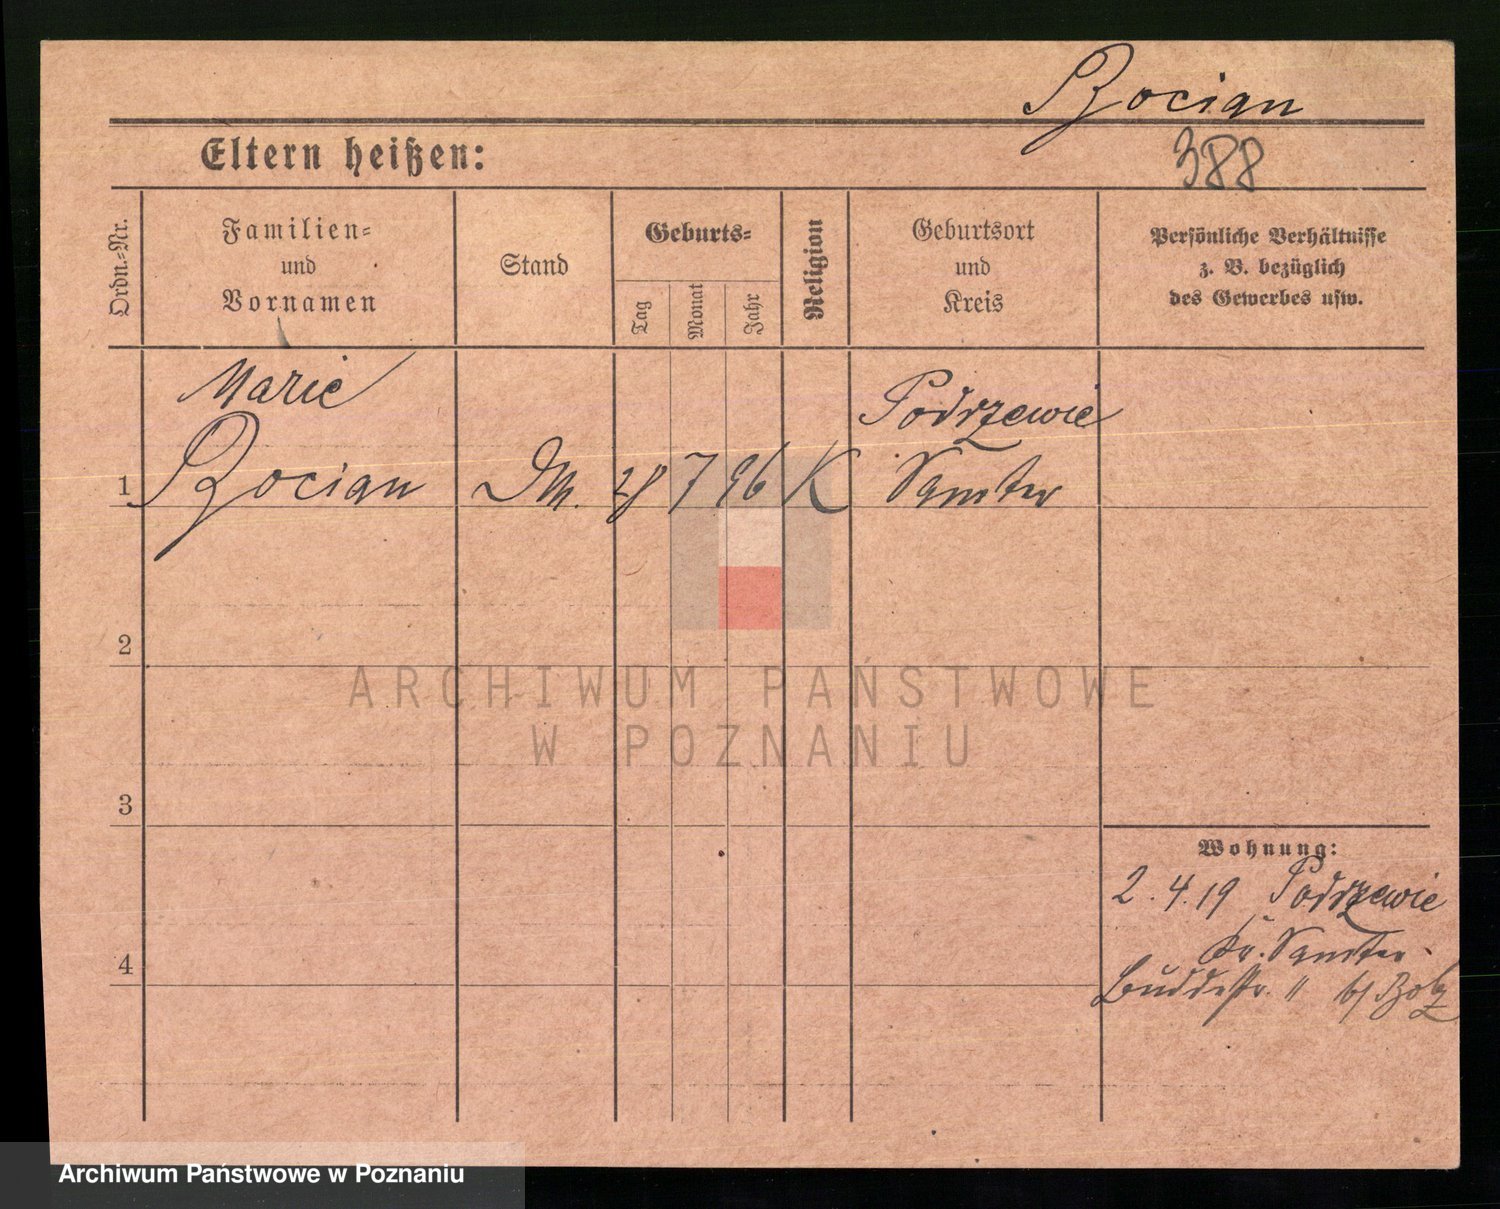 Bocian
388
Eltern heißen:
Ordn.-Nr.
Familien-
und
Vornamen
Stand
Geburts-
Tag
Monat
Jahr
Religion
Geburtsort
und
Kreis
Persönliche Verhältnisse
z. B. bezüglich
des Gewerbes usw.
Marie
1 Bocian 28 7 96 K
Podrzewie
Samter
2
ARCHIWUM PAŃSTWOWE
W POZNANIU
3
Wohnung:
2.4.19 Podrzewie
Kr. Samter
4
Buddestr. 11 b/
Archiwum Państwowe w Poznaniu